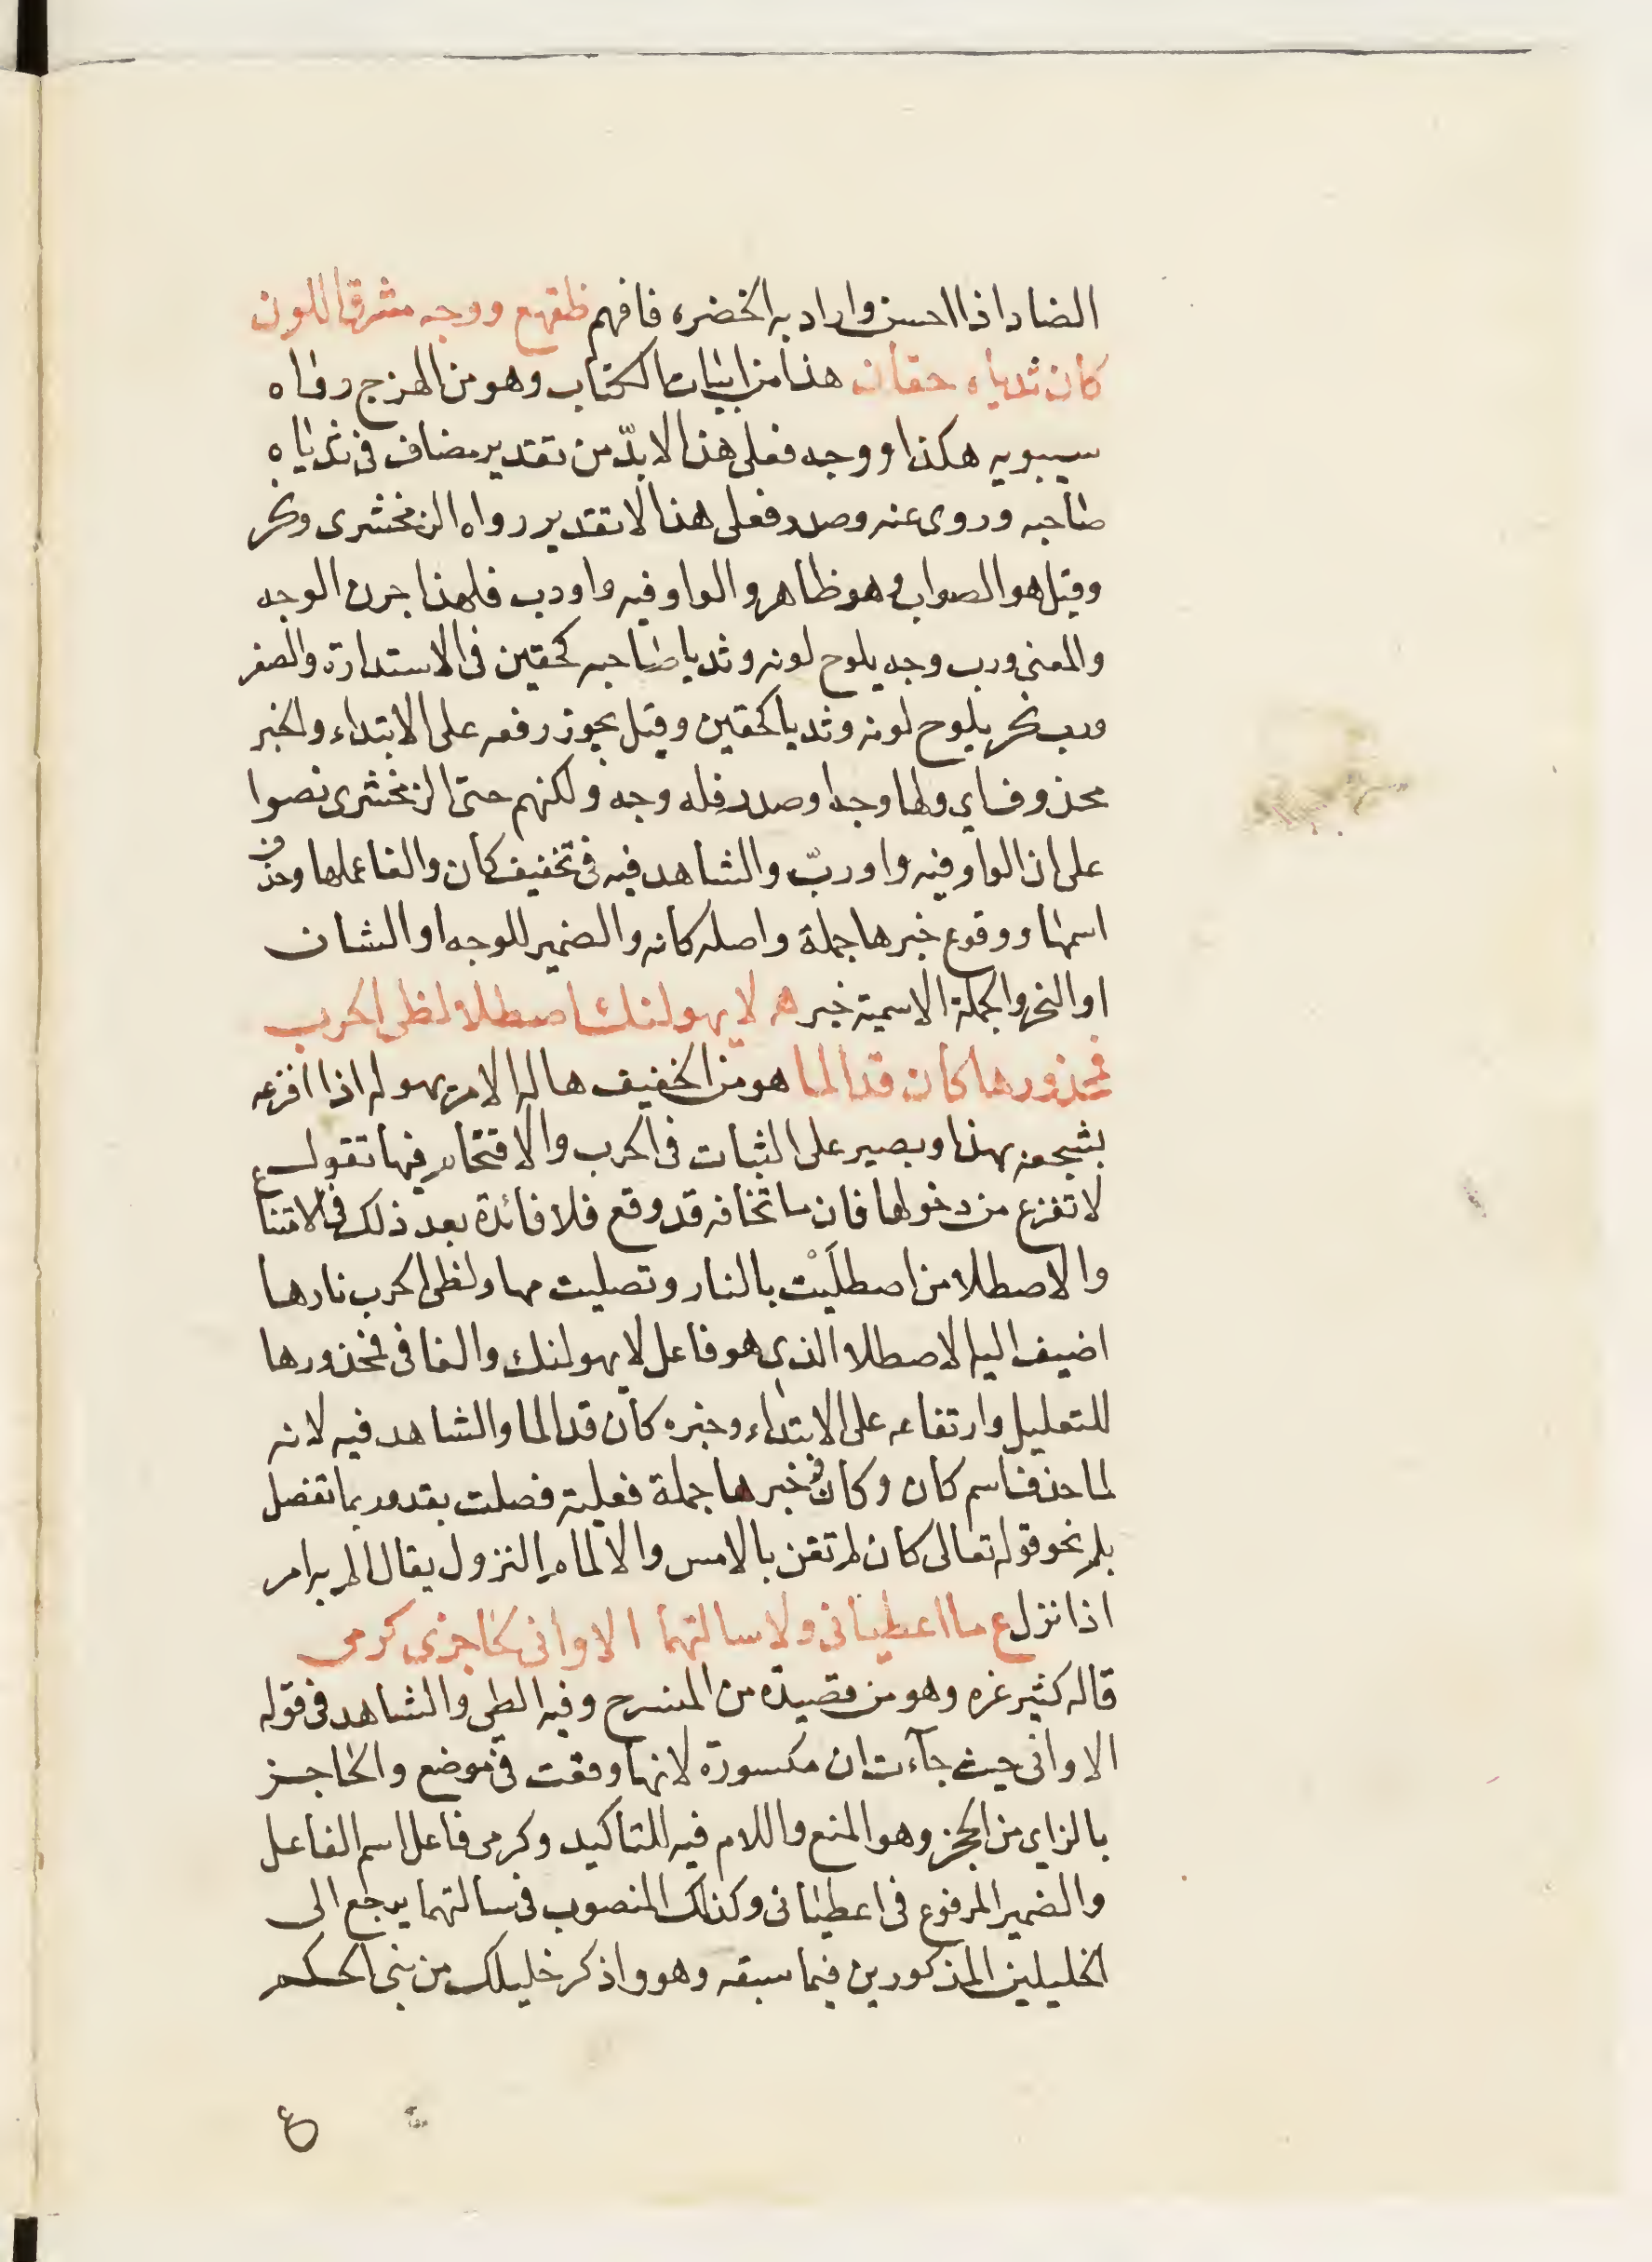 الضاد اذا احسن واراد به الخضره فافهم ظقهع ووجه مشرق اللون
كان ثدياه حقان هذا من ابيات الكتاب وهو من الهزج رواه
سيبويه هكذا ووجه فعلى هذا لا بدّ من تقدير مضاف فى ثدياه
صاحبه وروى عنه وصدر فعلى هذا لا تقدير رواه الزمخشرى ونحر
وقيل هو الصواب وهو ظاهر والواو فيه واو رب فلهذا جرت الوجه
والمعنى ورب وجه يلوح لونه وثديا صاحبه كحقين فى الاستدارة والصغر
ورب نحر يلوح لونه وثدياه كحقين وقيل يجوز رفعه على الابتداء والخبر
محذوف اى ولها وجه او صدر فله وجه ولكنهم حتى الزمخشرى نصوا
على ان الواو فيه واو ربّ والشاهد فيه فى تخفيف كان والغا عملها وحذف
اسمها ووقوع خبرها جملة واصله كانه والضمير للوجه او الشان
او النحر والجملة الاسمية خبر ه لا يهولنك اصطلاء لظى الحرب
فمحذورها كان قد الما هو من الخفيف هاله الامر يهوله اذا افزعه
يشجعه بهذا ويصبر على الثبات فى الحرب والاقتحام فيها تقول
لا تفزع من دخولها فان ما تخافه قد وقع فلا فائدة بعد ذلك فى الامتناع
والاصطلا من اصطلَيْت بالنار وتصليت بها ولظى الحرب نارها
اضيف اليه الاصطلا الذى هو فاعل لا يهولنك والفا فى فمحذورها
للتعليل وارتفاعه على الابتداء وخبره كان قد الما والشاهد فيه لانه
لما حذف اسم كان وكان فى خبرها جملة فعلية فصلت بقد وربما تفصل
بلم نحو قوله تعالى كان لم تغن بالامس والالمام النزول يقال الم به امر
اذا نزل ع ما اعطيانى ولا سالتهما الا وانى لحاجزى كرمى
قاله كثير عزه وهو من قصيدة من المنسرح وفيه الطى والشاهد فى قوله
الا وانى حيث جآءت ان مكسورة لانها وقعت فى موضع والحاجز
بالزاى من الحجز وهو المنع واللام فيه للتاكيد وكرمى فاعل اسم الفاعل
والضمير المرفوع فى اعطيانى وكذلك المنصوب فى سالتهما يرجع الى
الخليلين المذكورين فيما سبقه وهو واذكر خليلك من بنى الحكم